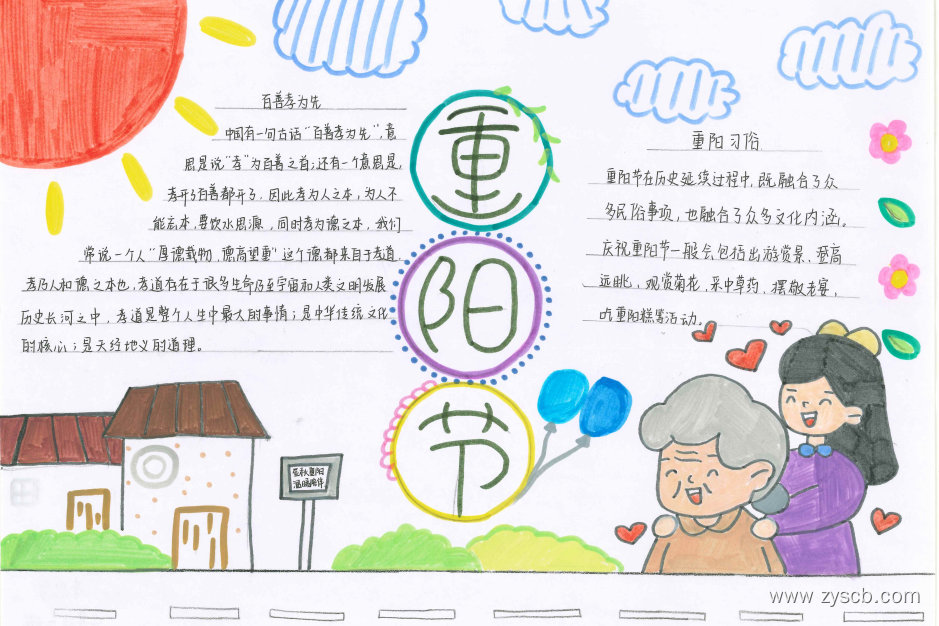 百善孝为先
中国有一句古话“百善孝为先”，意
思是说“孝”为百善之首；还有一个意思是，
孝开了百善都开了，因此孝为人之本，为人不
能忘本，要饮水思源，同时孝为德之本，我们
常说一个人“厚德载物，德高望重”这个德都来自于孝道，
孝乃人和德之本也，孝道存在于很多生命乃至宇宙和人类文明发展
历史长河之中，孝道是整个人生中最大的事情；是中华传统文化
的核心；是天经地义的道理。
重
阳
节
重阳习俗
重阳节在历史延续过程中，既融合了众
多民俗事项，也融合了众多文化内涵。
庆祝重阳节一般会包括出游赏景、登高
远眺、观赏菊花、采中草药、摆敬老宴，
吃重阳糕等活动。
重阳
温暖陪伴
www.zyscb.com